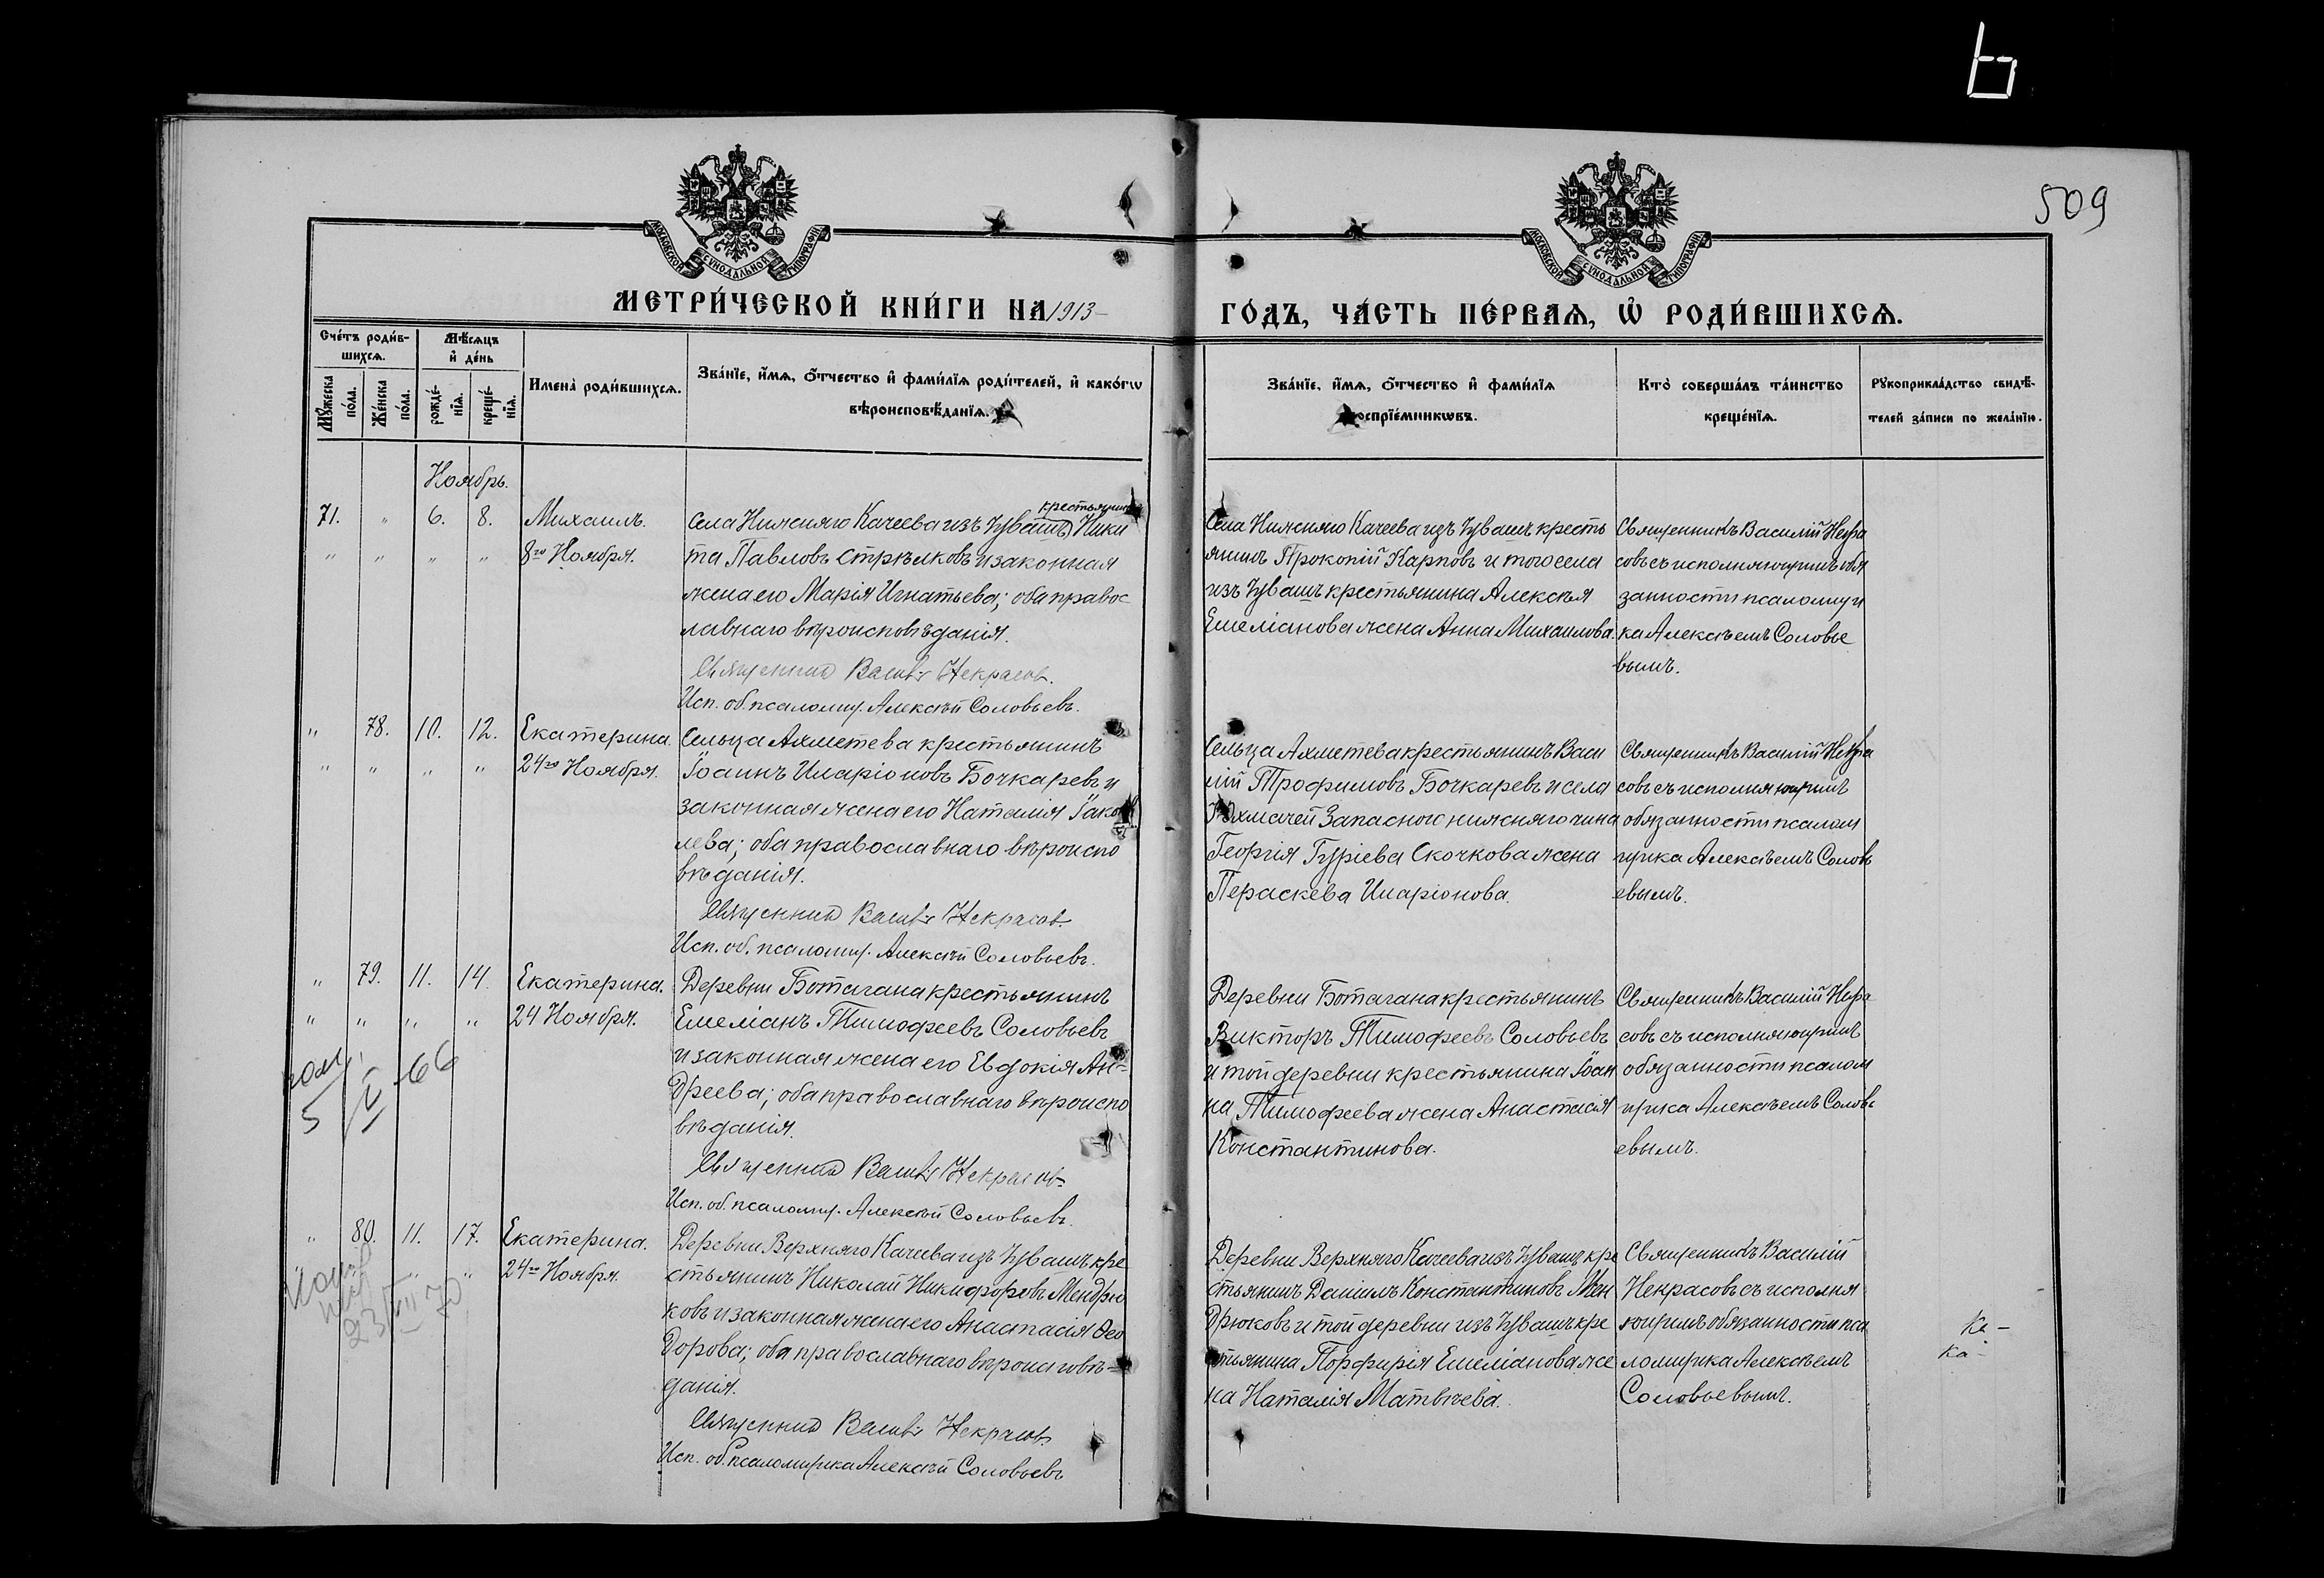 509
МОСКОВСКОЙ СѴНОДАЛЬНОЙ ТИПОГРАФІИ
МОСКОВСКОЙ СѴНОДАЛЬНОЙ ТИПОГРАФІИ
МЕТРИ́ЧЕСКОЙ КНИ́ГИ НА 1913
ГО́ДЪ, ЧА́СТЬ ПЕ́РВАѦ, Ѡ҆ РОДИ́ВШИХСѦ.
Сче́тъ роди́в-
шихсѧ.
Мꙋ́жеска
по́ла.
Же́нска
по́ла.
Мѣ́сѧцъ
и҆ де́нь
рожде́-
нїѧ.
креще́-
нїѧ.
Имена̀ роди́вшихсѧ.
Зва́нїе, и҆́мѧ, ѻ҆́тчество и҆ фами́лїѧ роди́телей, и҆ како́гѡ
вѣроисповѣ́данїѧ.
Зва́нїе, и҆́мѧ, ѻ҆́тчество и҆ фами́лїѧ
воспрїе́мникѡвъ.
Кто̀ соверша́лъ та́инство
креще́нїѧ.
Рꙋкоприкла́дство свидѣ́-
телей за́писи по жела́нїю.
Ноябрь.
71. " 6. 8. Михаилъ.
" " " " 8го Ноября.
крестьянинъ
Села Нижняго Качеева изъ Чувашъ Ники
та Павловъ Стрѣлковъ и законная
жена его Марія Игнатьева; оба правос
лавнаго вѣроисповѣданія.
Священникъ Василій Некрасовъ.
Исп. об. псаломщ. Алексѣй Соловьевъ.
Села Нижняго Качеева изъ Чувашъ кресть
янинъ Прокопій Карповъ и того села
изъ Чувашъ крестьянина Алексѣя
Емеліанова жена Анна Михаилова.
Священникъ Василій Некра
совъ съ исполняющимъ обя
занности псаломщи
ка Алексѣемъ Соловье
вымъ.
" 78. 10. 12. Екатерина.
" " " " 24го Ноября.
Сельца Ахметева крестьянинъ
Іоаннъ Иларіоновъ Бочкаревъ и
законная жена его Наталія Іаков
лева; оба православнаго вѣроиспо
вѣданія.
Священникъ Василій Некрасовъ.
Исп. об. псаломщ. Алексѣй Соловьевъ.
Сельца Ахметева крестьянинъ Васи
лій Трофимовъ Бочкаревъ и села
Рахмачей Запасного нижняго чина
Георгія Гуріева Скочкова жена
Пераскева Иларіонова.
Священникъ Василій Некра
совъ съ исполняющимъ
обязанности псалом
щика Алексѣемъ Соловь
евымъ.
" 79. 11. 14. Екатерина.
" " " " 24 Ноября.
5 66
Деревни Ботагана крестьянинъ
Емеліанъ Тимофеевъ Соловьевъ
и законная жена его Евдокія Ан-
дреева; оба православнаго вѣроиспо
вѣданія.
Священникъ Василій Некрасовъ
Исп. об. псаломщ. Алексѣй Соловьевъ.
Деревни Ботагана крестьянинъ
Викторъ Тимофеевъ Соловьевъ
и той деревни крестьянина Іоан
на Тимофеева жена Анастасія
Константинова.
Священникъ Василій Некра
совъ съ исполняющимъ
обязанности псалом
щика Алексѣемъ Соловь
евымъ.
" 80. 11. 17. Екатерина.
" 24го Ноября.
23 VII 70
Деревни Верхняго Качеева изъ Чувашъ кре
стьянинъ Николай Никифоровъ Мендрю
ковъ и законная жена его Анастасія Ѳео
дорова; оба православнаго вѣроисповѣ-
данія.
Священникъ Василій Некрасовъ
Исп. об. псаломщика Алексѣй Соловьевъ
Деревни Верхняго Качеева изъ Чувашъ кре
стьянинъ Даніилъ Константиновъ Мен
дрюковъ и той деревни изъ Чувашъ кре
стьянина Порфирія Емеліанова же
на Наталія Матвѣева.
Священникъ Василій
Некрасовъ съ исполня
ющимъ обязанности пса
ломщика Алексѣемъ
Соловьевымъ.
Ка -
ка -